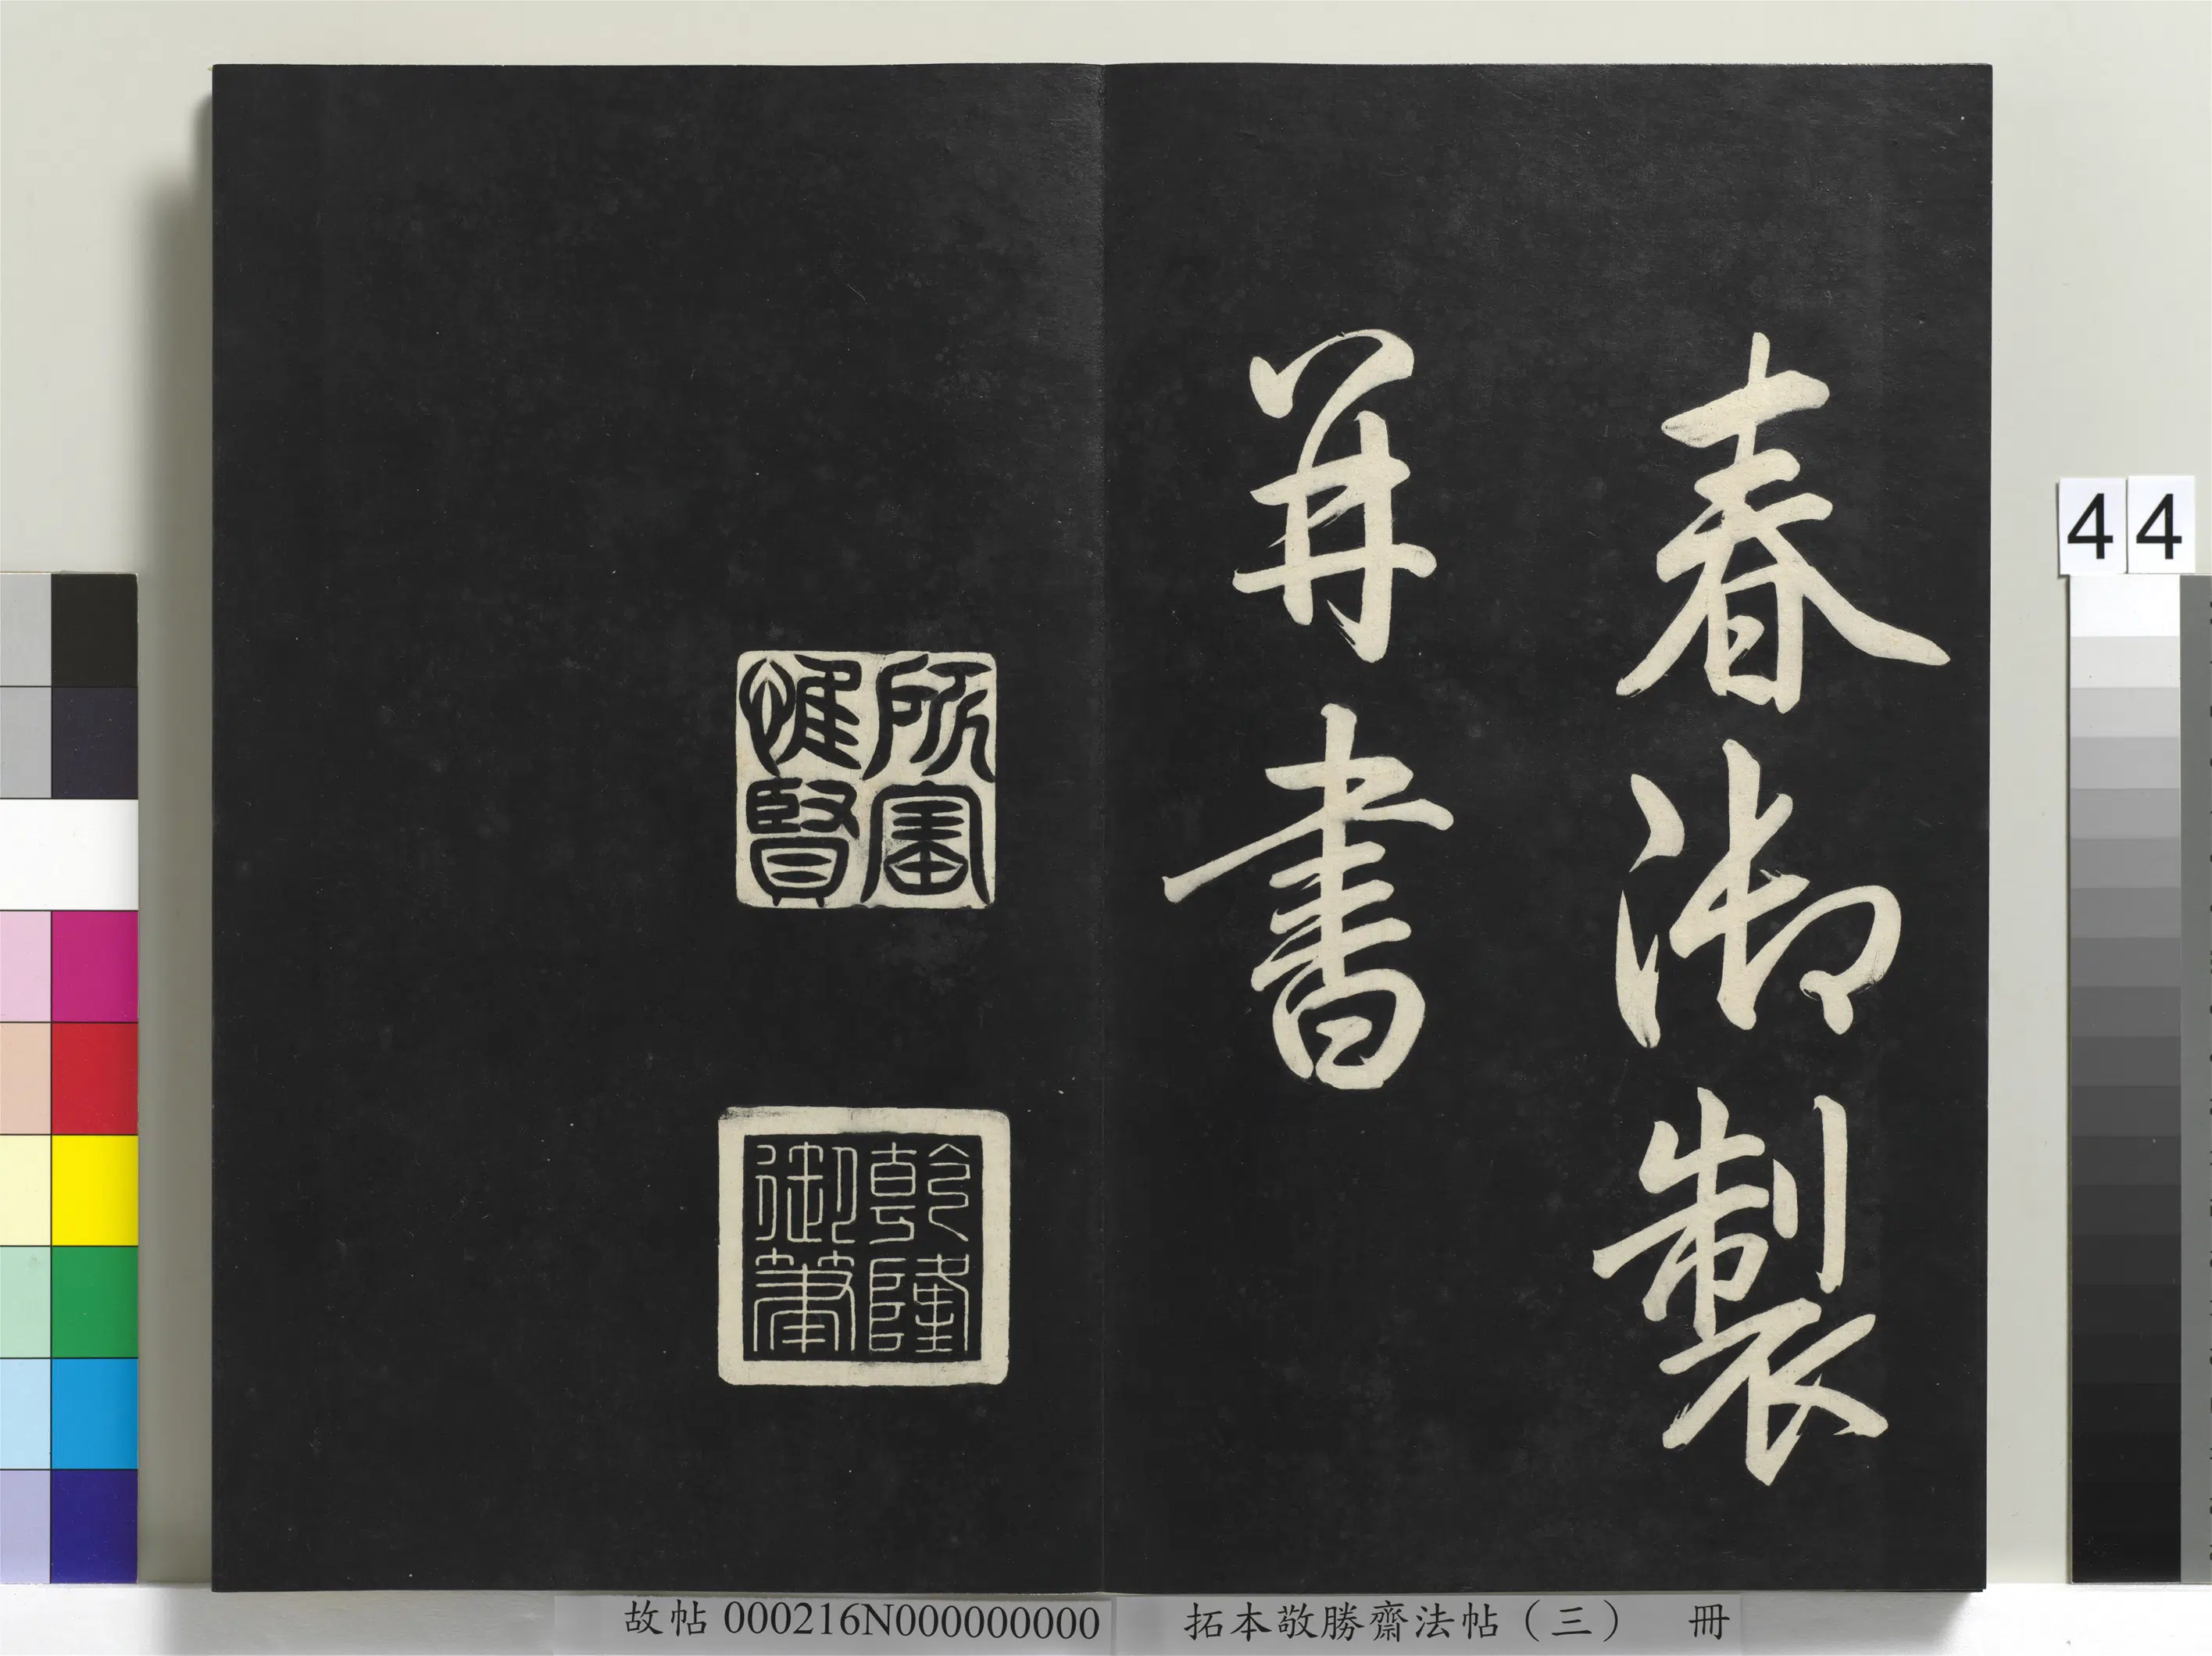 春御製
并書
所寶
惟賢
乾隆
御筆
44
故帖 000216N000000000
拓本敬勝齋法帖（三） 冊